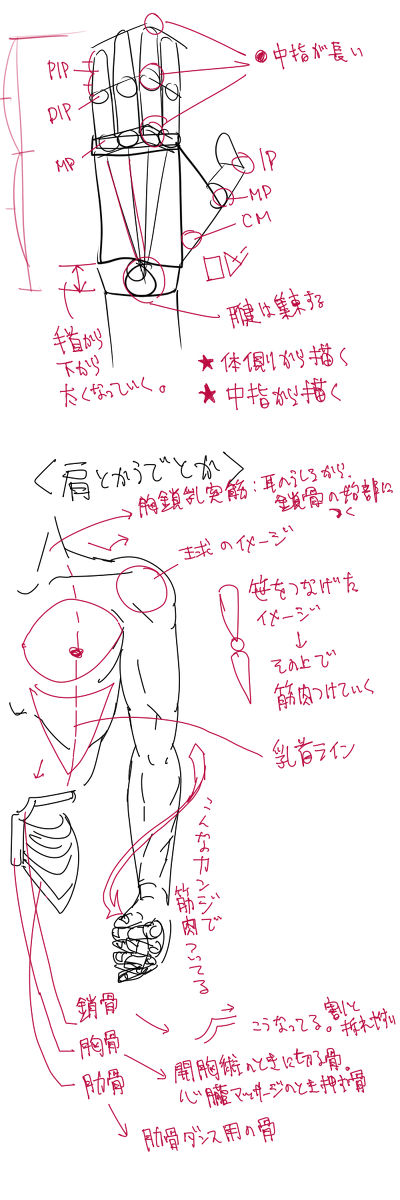 中指が長い
PIP
DIP
MP
IP
MP
CM
腱は集束する
手首から
下から
太くなっていく。
★体側から描く
★中指から描く
〈肩とかうでとか〉
胸鎖乳突筋：耳のうしろから、
鎖骨の始部に
つく
球のイメージ
笹をつなげた
イメージ
↓
その上で
筋肉つけていく
乳首ライン
こんなカンジで
筋肉ついてる
鎖骨
こうなってる。割と
折れやすい
胸骨
開胸術のときに切る骨。
心臓マッサージのとき押す骨
肋骨
肋骨ダンス用の骨